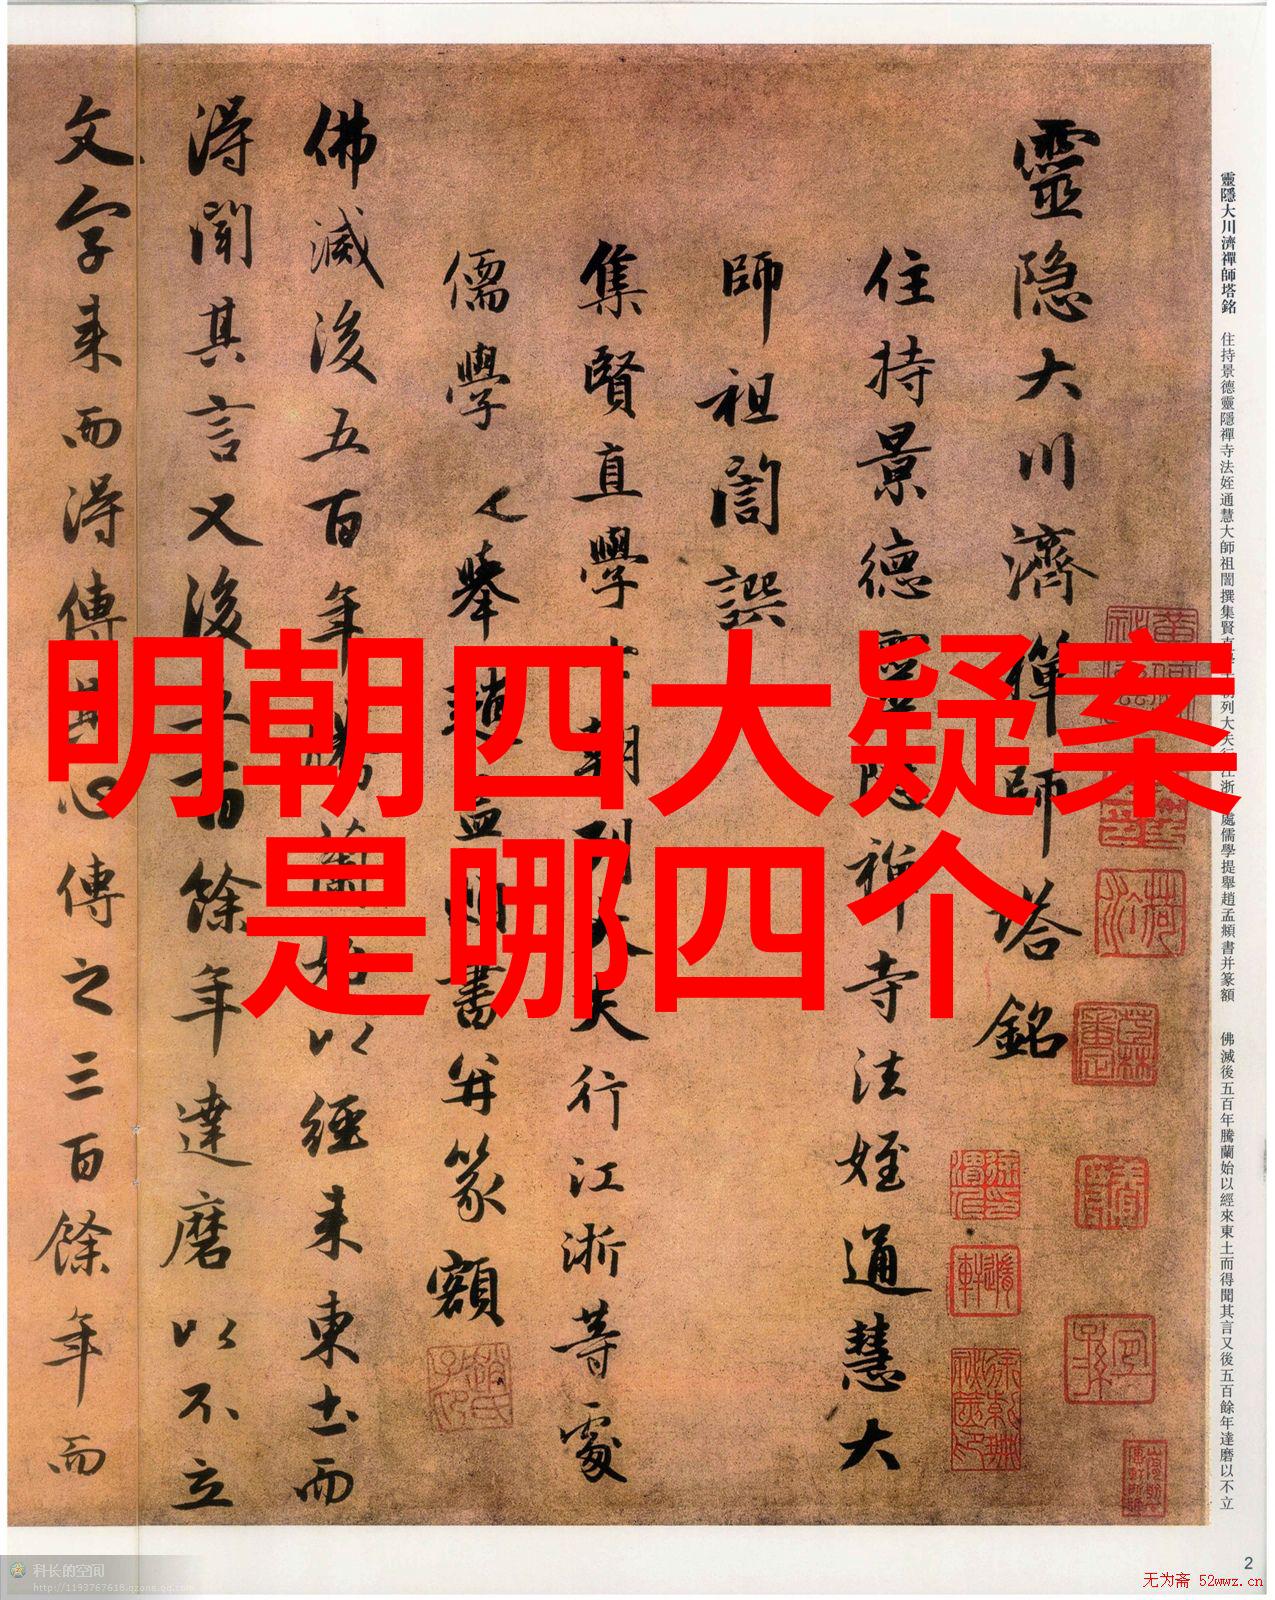 明朝四大疑案
是哪四个
靈隐大川濟禅師塔銘
住持景德靈隐禅寺法姪通慧大
師祖誾譔
集賢直學士朝列大夫行江浙等處
儒學
舉趙孟頫書并篆額
佛滅後五百年騰蘭始以經来東土而
得聞其言又後五百餘年達磨以不立
文字来而得傳其心傳之三百餘年而
靈隱大川濟禪師塔銘
住持景德靈隱禪寺法姪通慧大師祖誾撰集賢直學
列大夫行江浙
處儒學提舉趙孟頫書并篆額
佛滅後五百年騰蘭始以經來東土而得聞其言又後五百餘年達磨以不立
2
科长的空间
http://1193767618.qzone.qq.com
无为斋 52wwz.cn